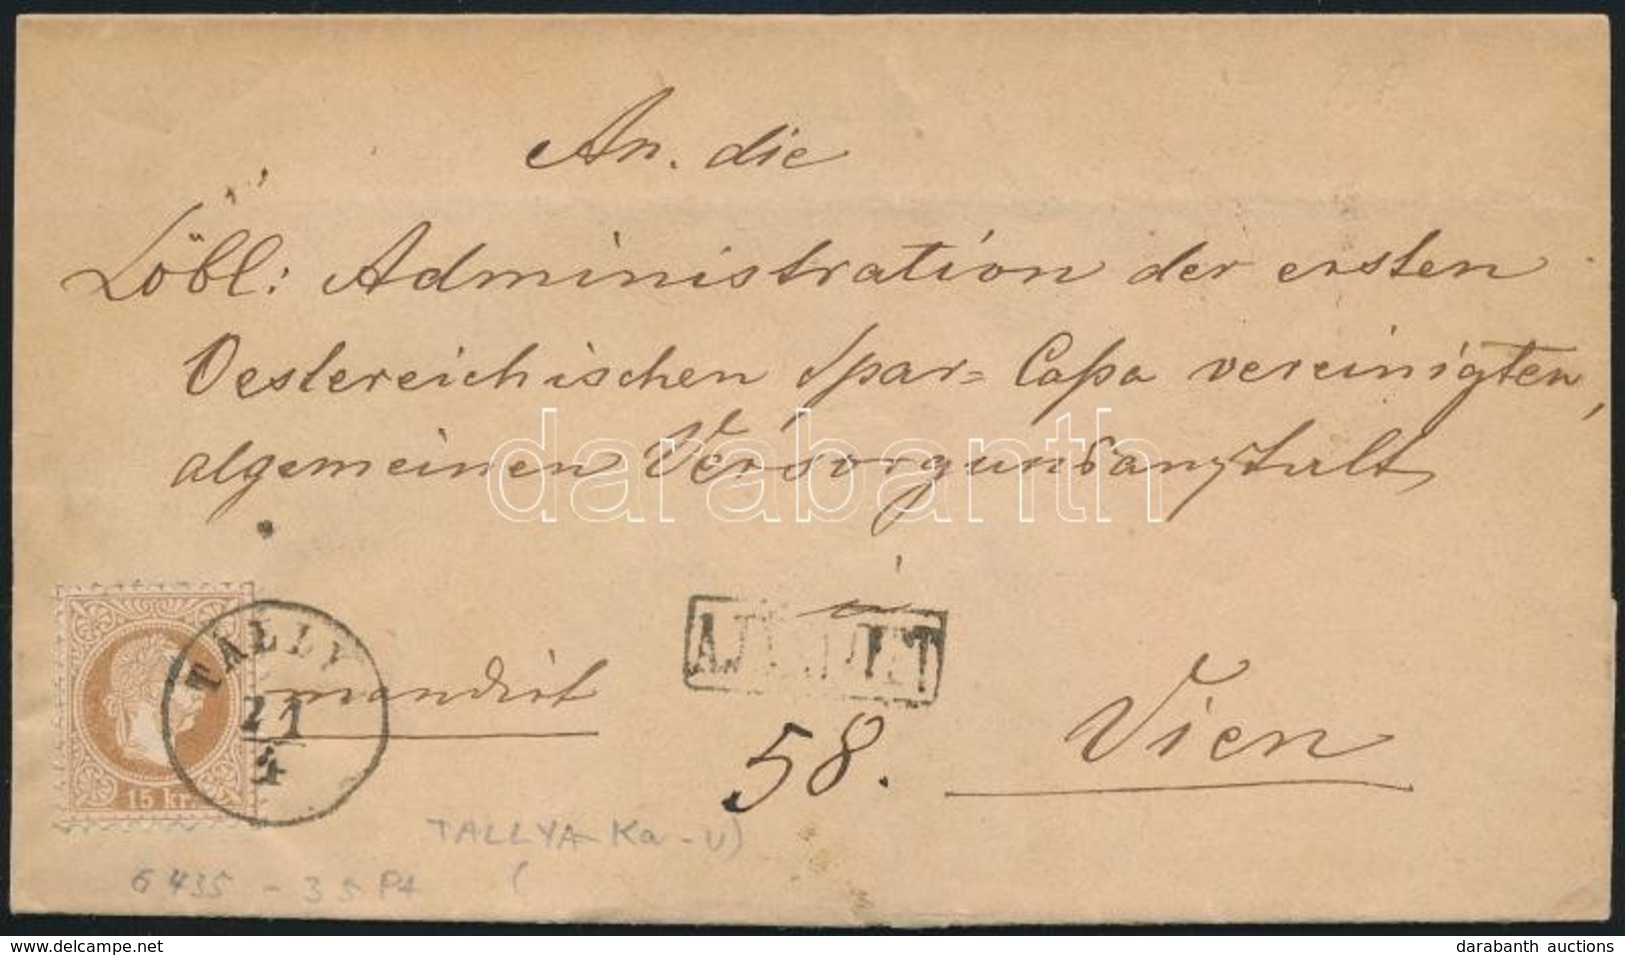 An. die
Löbl: Administration der ersten
Oestereichischen Spar= Cassa vereinigten,
algemeinen Versorgunsanstalt
darabanth
in
TALLYA
21
4
15 kr.
AJÁNLOTT
58.
Vien
TALLYA Ka-U)
6435 - 35 Pt
www.delcampe.net
darabanth auctions